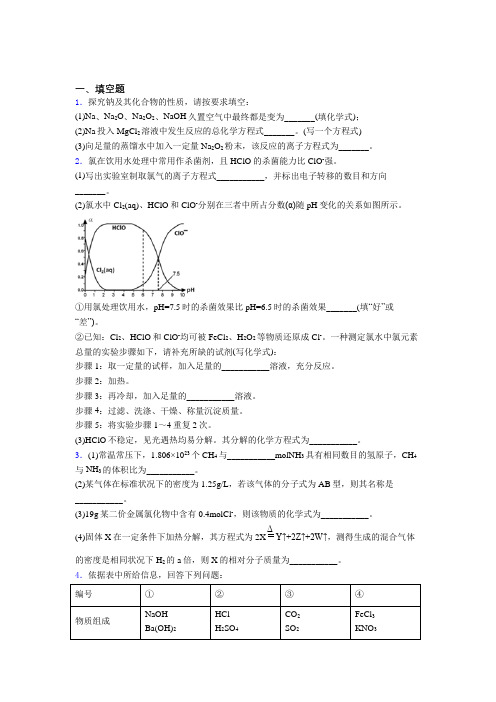 一、填空题
1．探究钠及其化合物的性质，请按要求填空：
(1)Na、Na₂O、Na₂O₂、NaOH 久置空气中最终都是变为_______(填化学式)；
(2)Na 投入 MgCl₂ 溶液中发生反应的总化学方程式_______。(写一个方程式)
(3)向足量的蒸馏水中加入一定量 Na₂O₂ 粉末，该反应的离子方程式为_______。
2．氯在饮用水处理中常用作杀菌剂，且 HClO 的杀菌能力比 ClO⁻强。
(1)写出实验室制取氯气的离子方程式___________，并标出电子转移的数目和方向
_______。
(2)氯水中 Cl₂(aq)、HClO 和 ClO⁻分别在三者中所占分数(α)随 pH 变化的关系如图所示。
α
HClO
ClO⁻
Cl₂(aq)
1.0
0.8
0.6
0.4
0.2
0.0
7.5
0 1 2 3 4 5 6 7 8 9 10 pH
①用氯处理饮用水，pH=7.5 时的杀菌效果比 pH=6.5 时的杀菌效果_______(填“好”或
“差”)。
②已知：Cl₂、HClO 和 ClO⁻均可被 FeCl₂、H₂O₂ 等物质还原成 Cl⁻。一种测定氯水中氯元素
总量的实验步骤如下，请补充所缺的试剂(写化学式)：
步骤 1：取一定量的试样，加入足量的___________溶液，充分反应。
步骤 2：加热。
步骤 3：再冷却，加入足量的___________溶液。
步骤 4：过滤、洗涤、干燥、称量沉淀质量。
步骤 5：将实验步骤 1～4 重复 2 次。
(3)HClO 不稳定，见光遇热均易分解。其分解的化学方程式为___________。
3．(1)常温常压下，1.806×10²³ 个 CH₄ 与___________molNH₃ 具有相同数目的氢原子，CH₄
与 NH₃ 的体积比为___________。
(2)某气体在标准状况下的密度为 1.25g/L，若该气体的分子式为 AB 型，则其名称是
___________。
(3)19g 某二价金属氯化物中含有 0.4molCl⁻，则该物质的化学式为___________。
(4)固体 X 在一定条件下加热分解，其方程式为 2X =^Δ= Y↑+2Z↑+2W↑，测得生成的混合气体
的密度是相同状况下 H₂ 的 a 倍，则 X 的相对分子质量为___________。
4．依据表中所给信息，回答下列问题：
编号 ① ② ③ ④
物质组成 NaOH HCl CO₂ FeCl₃
Ba(OH)₂ H₂SO₄ SO₂ KNO₃